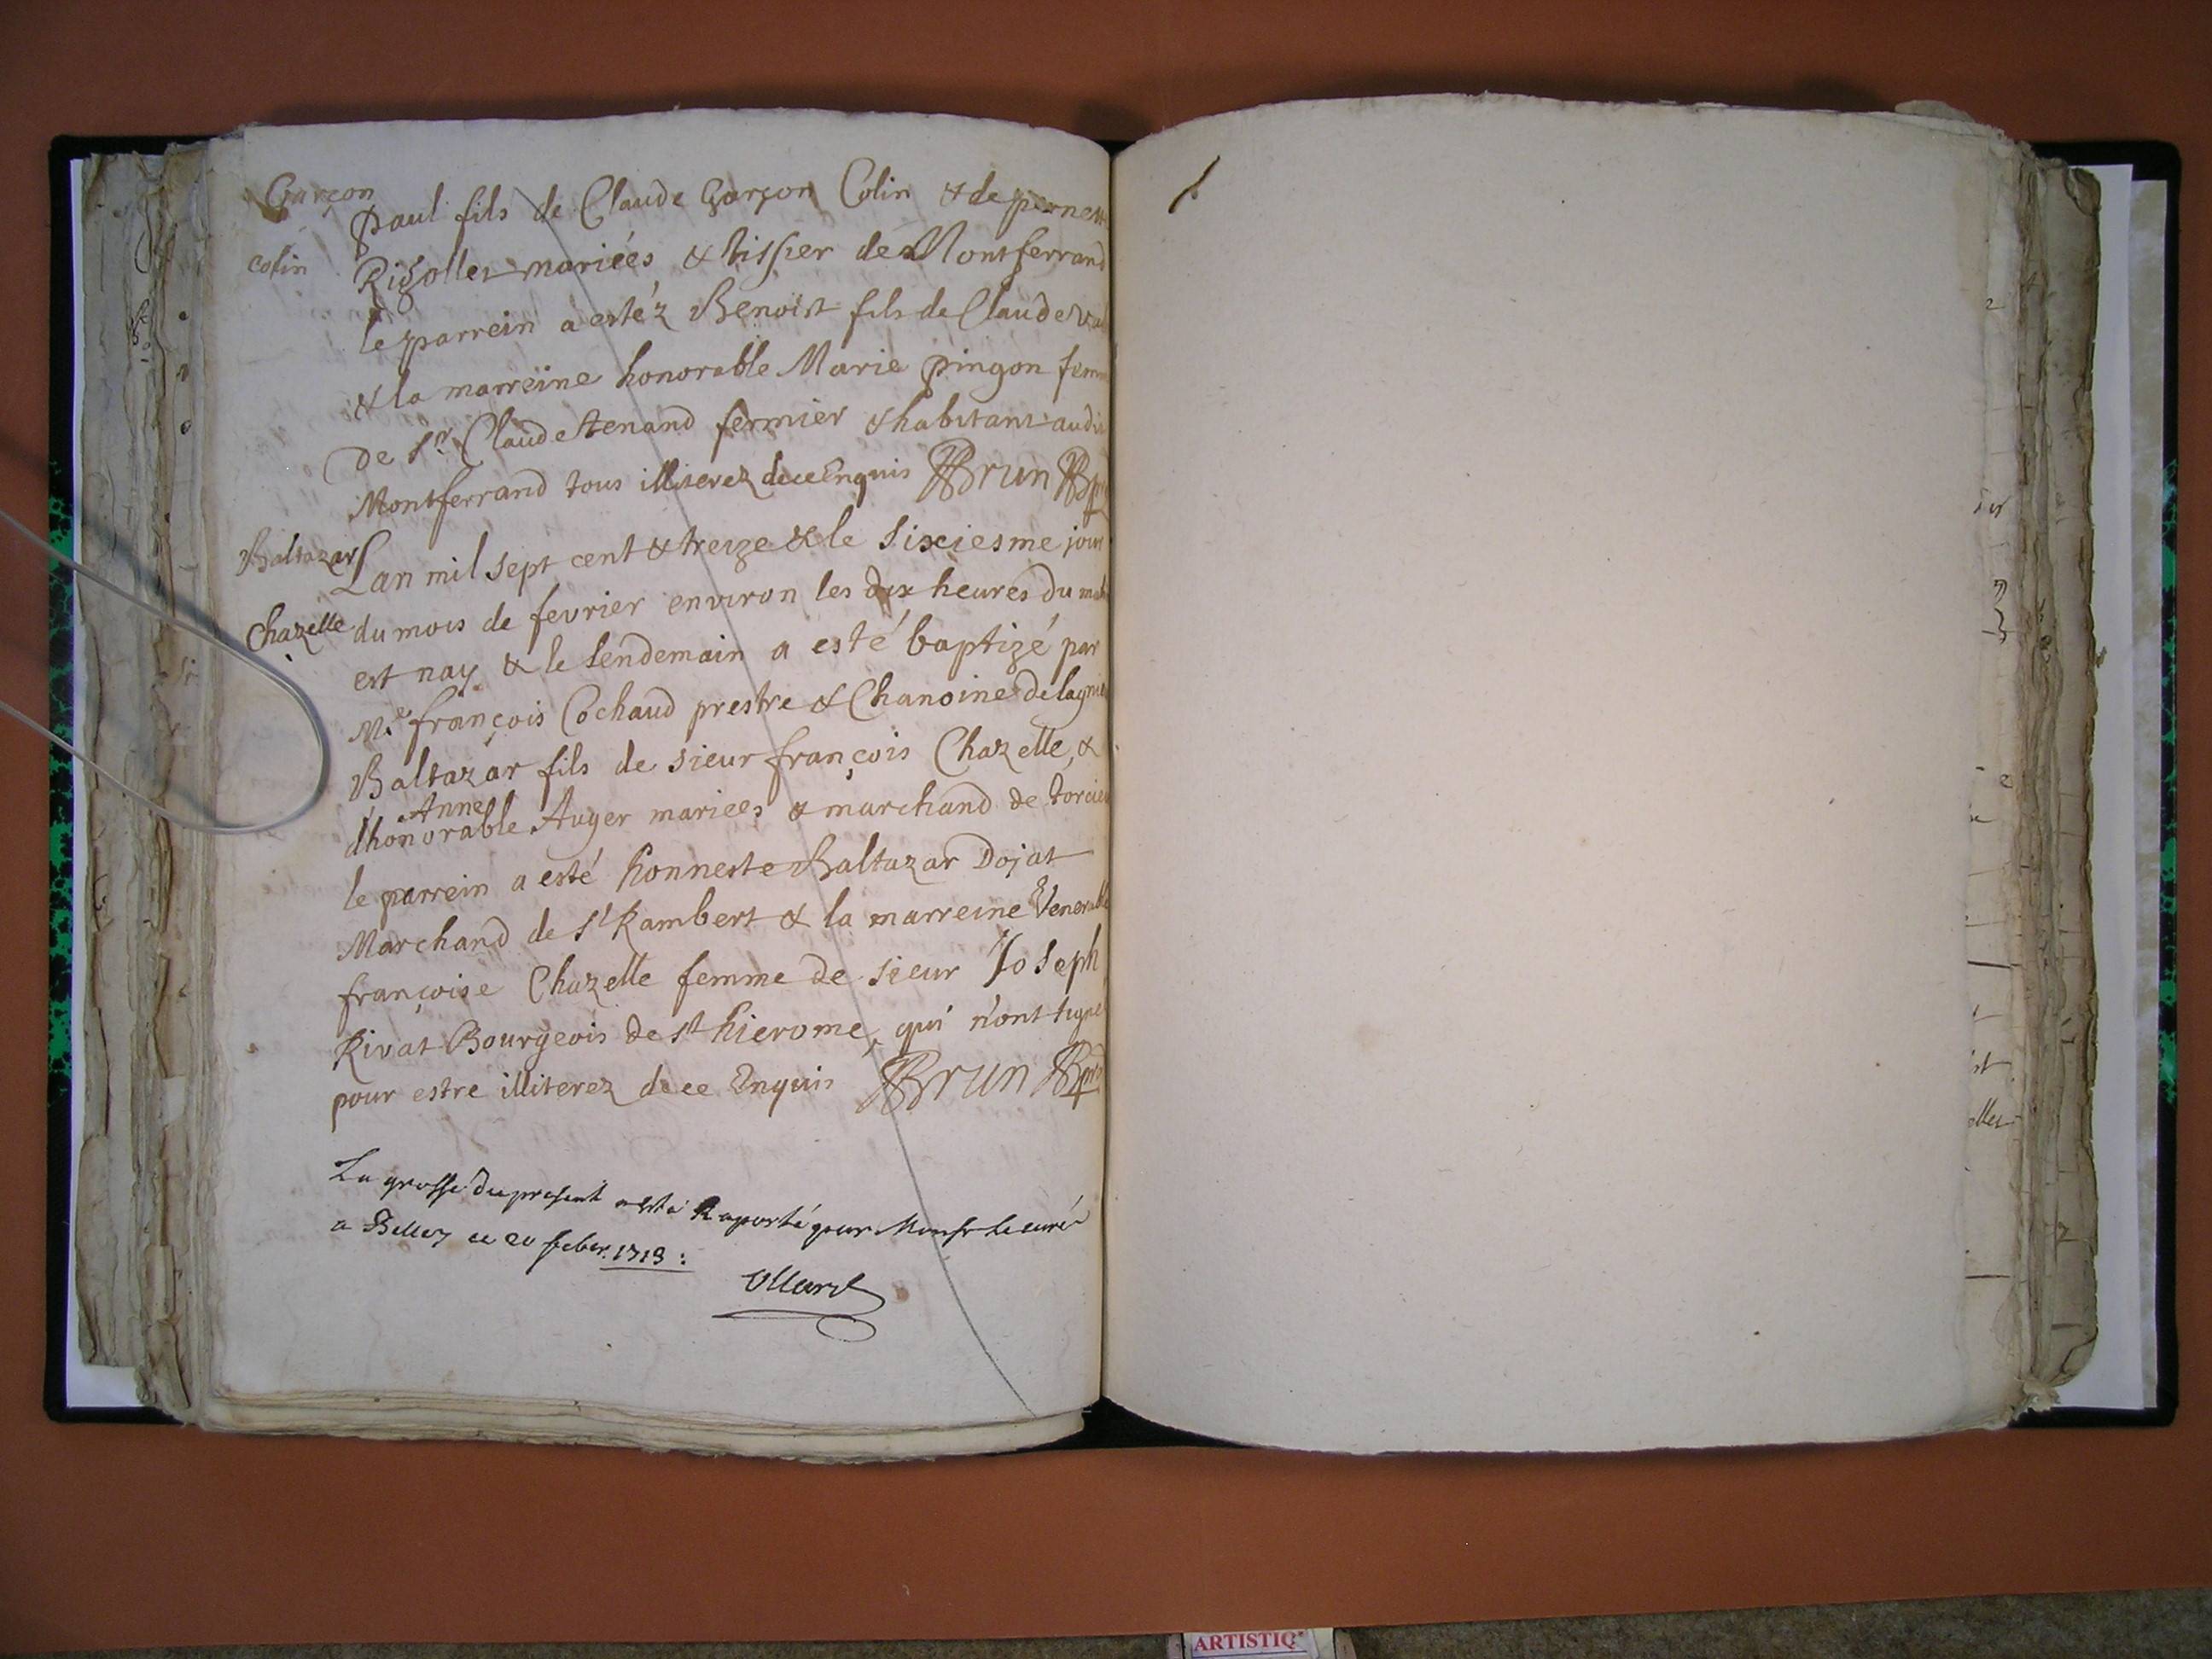 Garçon
colin
Paul fils de Claude Garçon Colin & de pernette
Rigollet mariées & tissier de Montferrand
le parrein a estéz Benoist fils de Claude
& la marreine honorable Marie pingon femme
De Sr. Claude tenand fermier & habitant audit
Montferrand tous illiterez de ce Enquis Brun
Baltazar
Chazelle
Lan mil sept cent & treize & le sixiesme jour
du mois de fevrier environ les dix heures du matin
est nay & le lendemain a esté baptizé par
Me françois Cochaud prestre & Chanoine de lagnieu
Baltazar fils de sieur françois Chazelle, &
Anne
dhonorable Auger mariees & marchand de torcieu
le parrein a esté honneste Baltazar Dojat
Marchand de st Rambert & la marreine Venerable
françoise Chazelle femme de sieur Joseph
Rivat Bourgeois de st hierome, qui n'ont signé
pour estre illiterez de ce Enquis Brun
La grosse du present a esté Raporté par Monsr le curé
a Belley ce 20 feber. 1713 :
ARTISTIQ